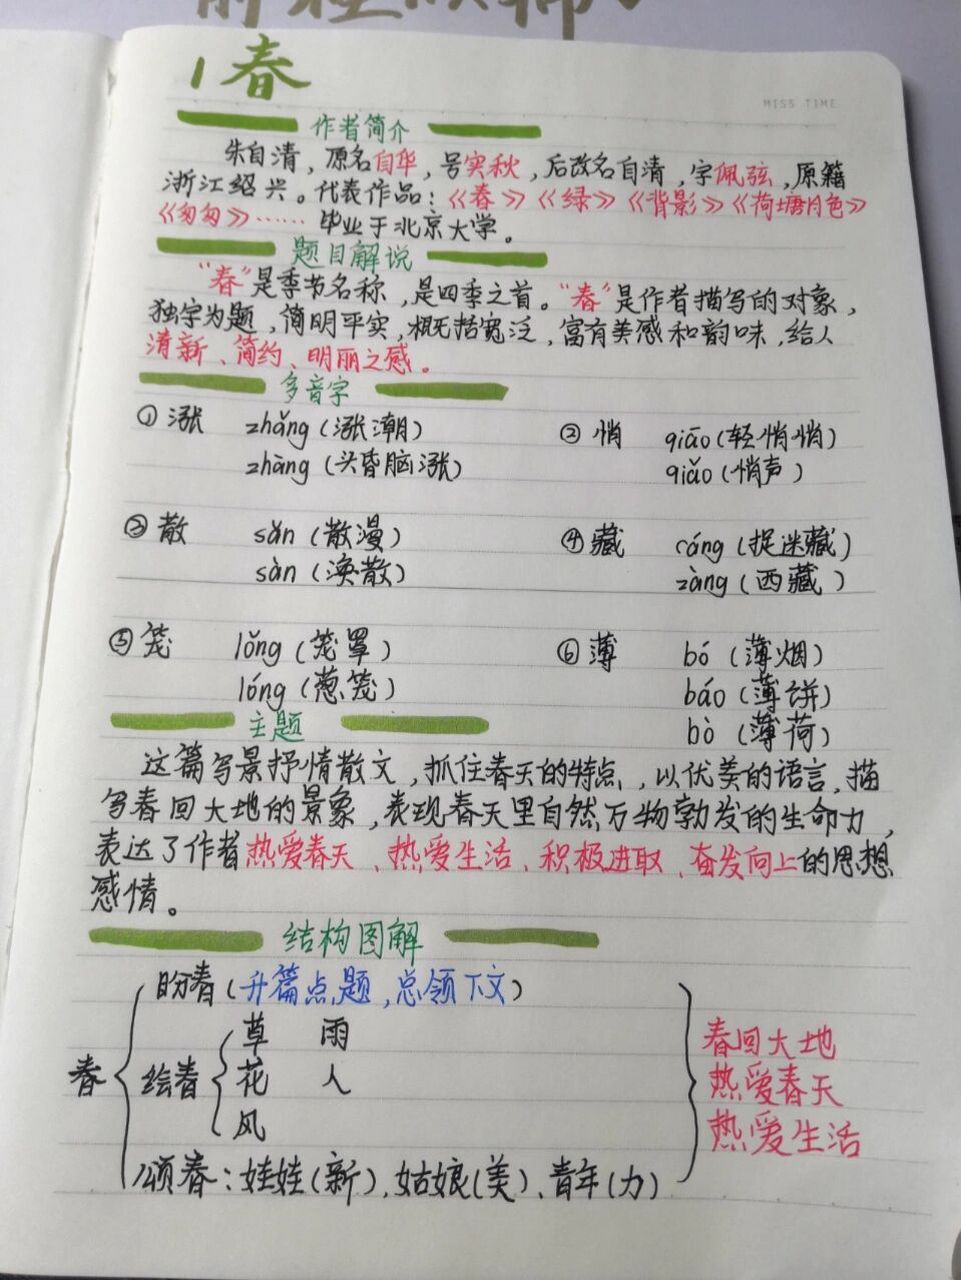 1 春
MISS TIME
作者简介
朱自清，原名自华，号实秋，后改名自清，字佩弦，原籍
浙江绍兴。代表作品：《春》《绿》《背影》《荷塘月色》
《匆匆》…… 毕业于北京大学。
题目解说
“春”是季节名称，是四季之首。“春”是作者描写的对象，
独字为题，简明平实，概括宽泛，富有美感和韵味，给人
清新、简约、明丽之感。
多音字
①涨 zhǎng（涨潮） ②悄 qiāo（轻悄悄）
zhàng（头昏脑涨） qiǎo（悄声）
③散 sǎn（散漫） ④藏 cáng（捉迷藏）
sàn（涣散） zàng（西藏）
⑤笼 lǒng（笼罩） ⑥薄 bó（薄烟）
lóng（葱笼） báo（薄饼）
bò（薄荷）
主题
这篇写景抒情散文，抓住春天的特点，以优美的语言，描
写春回大地的景象，表现春天里自然万物勃发的生命力，
表达了作者热爱春天、热爱生活、积极进取、奋发向上的思想
感情。
结构图解
盼春（开篇点题，总领下文）
草 雨
春 绘春 花 人
风
颂春：娃娃（新）、姑娘（美）、青年（力）
春回大地
热爱春天
热爱生活